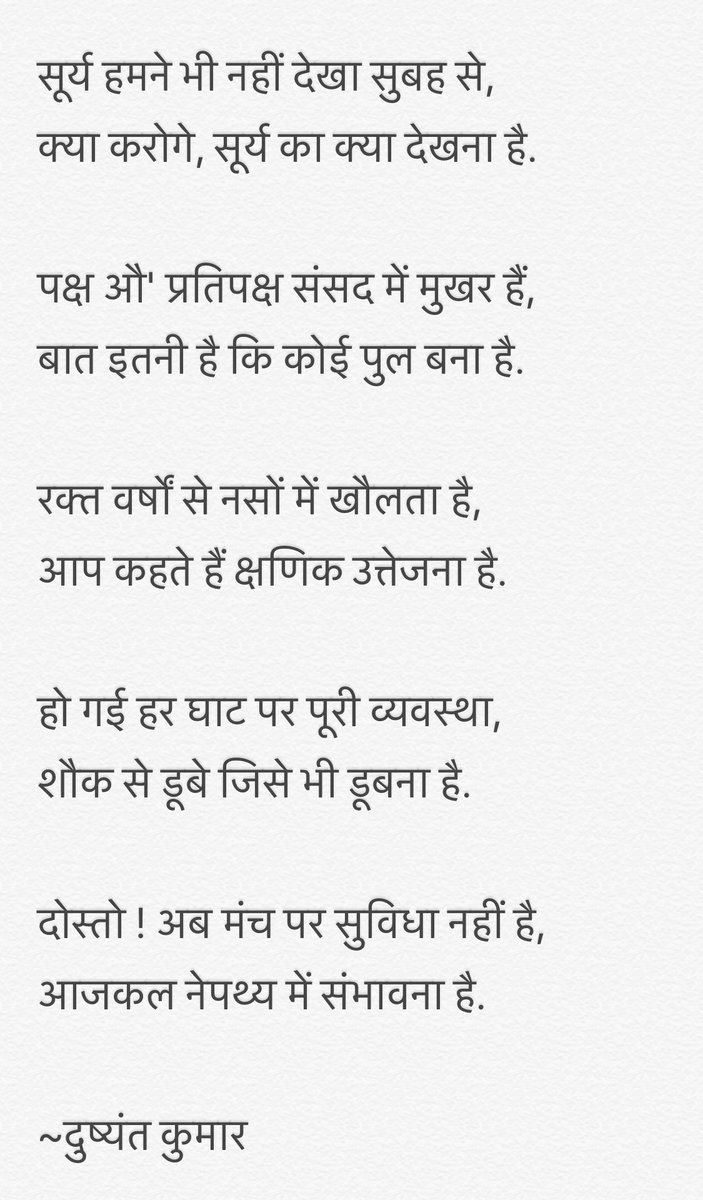 सूर्य हमने भी नहीं देखा सुबह से,
क्या करोगे, सूर्य का क्या देखना है.
पक्ष औ' प्रतिपक्ष संसद में मुखर हैं,
बात इतनी है कि कोई पुल बना है.
रक्त वर्षों से नसों में खौलता है,
आप कहते हैं क्षणिक उत्तेजना है.
हो गई हर घाट पर पूरी व्यवस्था,
शौक से डूबे जिसे भी डूबना है.
दोस्तो ! अब मंच पर सुविधा नहीं है,
आजकल नेपथ्य में संभावना है.
~दुष्यंत कुमार